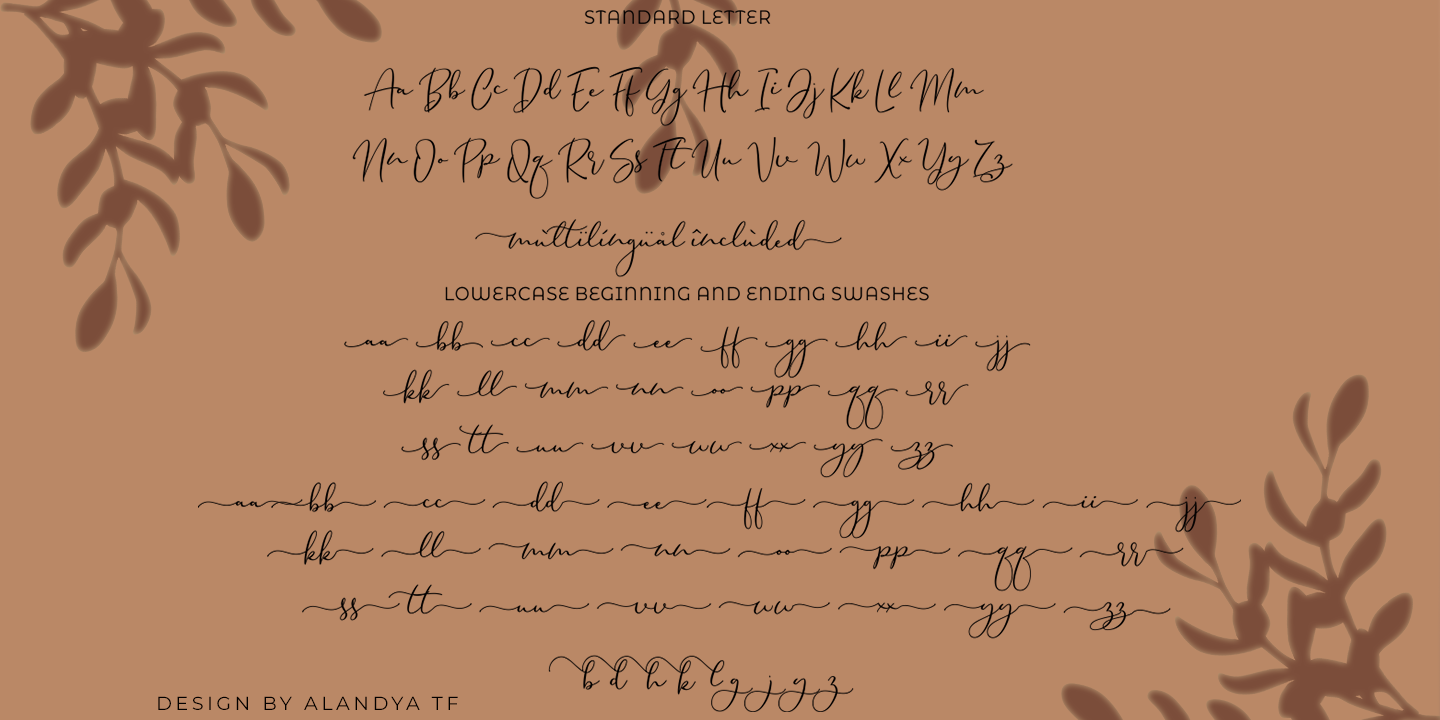 STANDARD LETTER
Aa Bb Cc Dd Ee Ff Gg Hh Ii Jj Kk Ll Mm
Nn Oo Pp Qq Rr Ss Tt Uu Vv Ww Xx Yy Zz
mùltílíngüål înclùded
LOWERCASE BEGINNING AND ENDING SWASHES
aa bb cc dd ee ff gg hh ii jj
kk ll mm nn oo pp qq rr
ss tt uu vv ww xx yy zz
aa bb cc dd ee ff gg hh ii jj
kk ll mm nn oo pp qq rr
ss tt uu vv ww xx yy zz
b d h k l g j y z
DESIGN BY ALANDYA TF